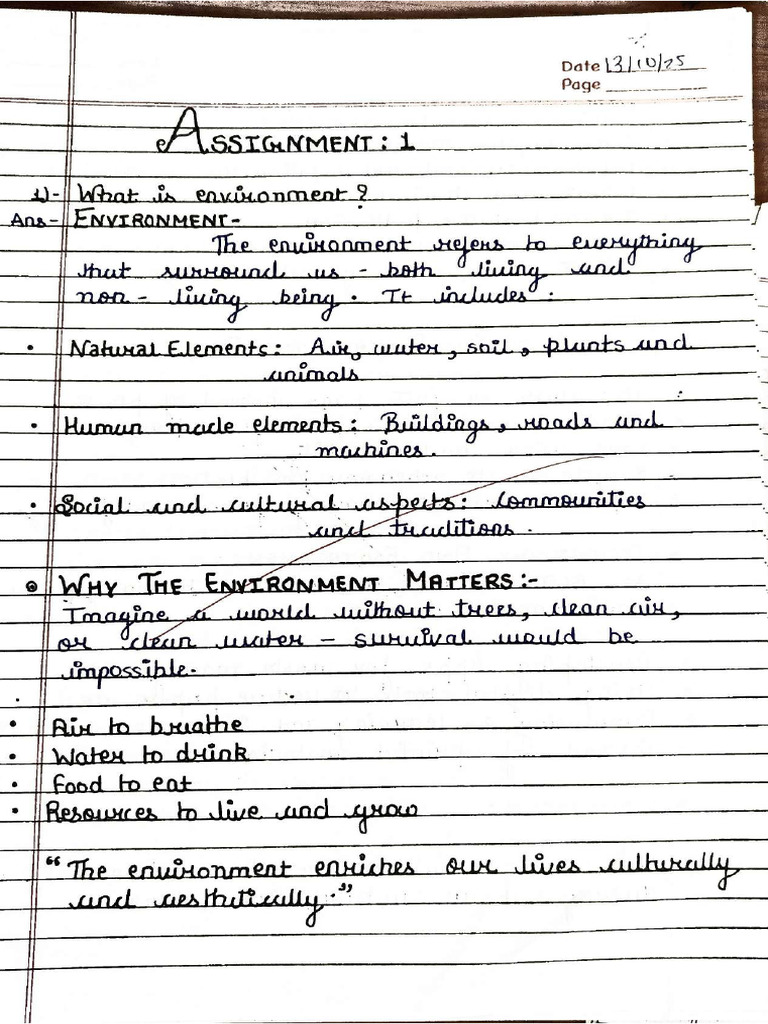 Date 13/10/25
Page
ASSIGNMENT : 1
1)- What is environment ?
Ans- ENVIRONMENT-
The environment refers to everything
that surround us - both living and
non - living being. It includes :
• Natural Elements: Air, water, soil, plants and
animals
• Human made elements: Buildings, roads and
machines.
• Social and cultural aspects: Commounities
and traditions.
WHY THE ENVIRONMENT MATTERS:-
Imagine a world without trees, clean air,
or clean water - survival would be
impossible.
• Air to breathe
• Water to drink
• Food to eat
• Resources to live and grow
“ The environment enriches our lives culturally
and aesthetically.”